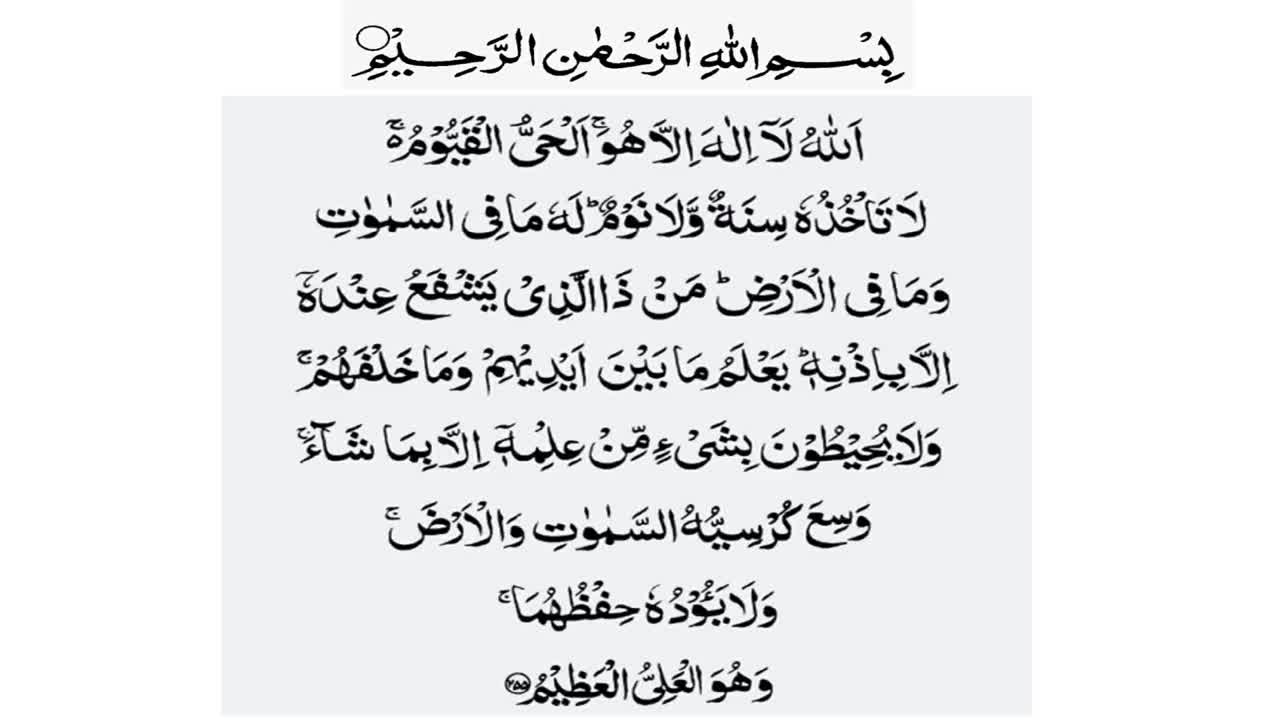 بِسْمِ اللهِ الرَّحْمٰنِ الرَّحِيْمِ○
اَللهُ لَآ اِلٰهَ اِلَّا هُوَ ۚ اَلْحَیُّ الْقَيُّوْمُ ۚ
لَا تَاْخُذُهٗ سِنَةٌ وَّلَا نَوْمٌ ؕ لَهٗ مَا فِی السَّمٰوٰتِ
وَمَا فِی الْاَرْضِ ؕ مَنْ ذَا الَّذِیْ يَشْفَعُ عِنْدَهٗۤ
اِلَّا بِاِذْنِهٖ ؕ يَعْلَمُ مَا بَيْنَ اَيْدِيْهِمْ وَمَا خَلْفَهُمْ ۚ
وَلَا يُحِيْطُوْنَ بِشَیْءٍ مِّنْ عِلْمِهٖۤ اِلَّا بِمَا شَآءَ ۚ
وَسِعَ كُرْسِيُّهُ السَّمٰوٰتِ وَالْاَرْضَ ۚ
وَلَا يَـُٔوْدُهٗ حِفْظُهُمَا ۚ
وَهُوَ الْعَلِیُّ الْعَظِيْمُ ۝۲۵۵